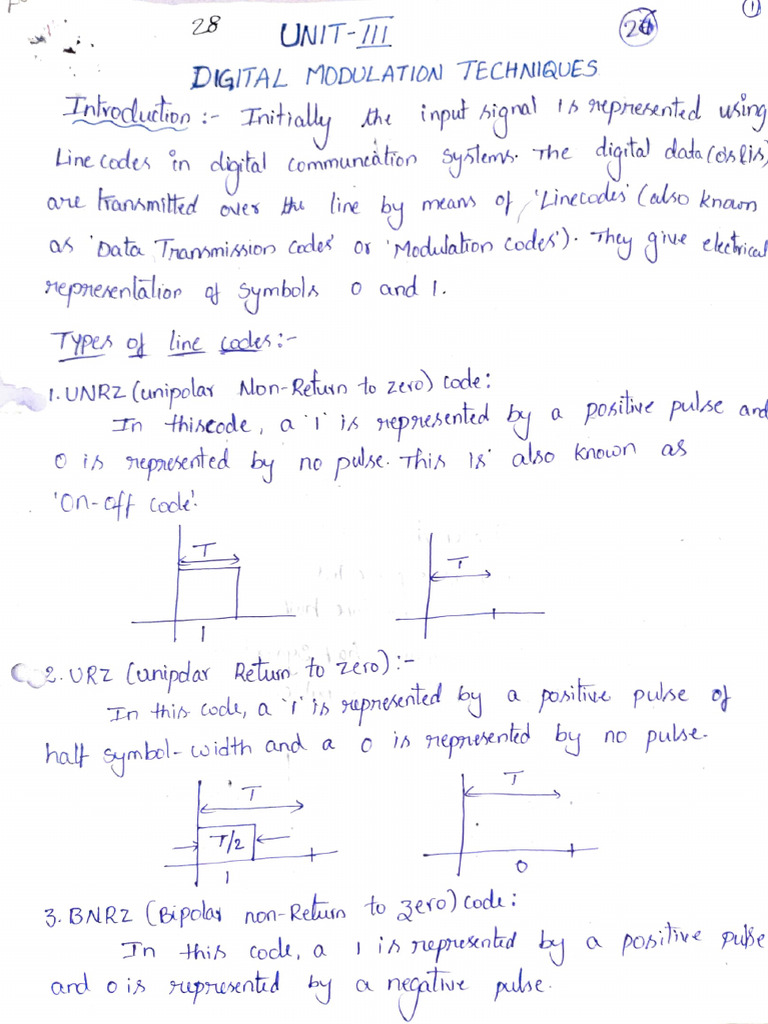 28
UNIT-III
1
DIGITAL MODULATION TECHNIQUES
Introduction :- Initially the input signal is represented using
Line codes in digital communcation systems. The digital data (0's 1's)
are transmitted over the line by means of 'Linecodes' (also known
as 'Data Transmission codes' or 'Modulation codes'). They give electrical
representation of symbols 0 and 1.
Types of line codes:-
1. UNRZ (unipolar Non-Return to zero) code:
In this code, a '1' is represented by a positive pulse and
0 is represented by no pulse. This is also known as
'On-off code'.
T
T
1
2. URZ (unipolar Return to zero):-
In this code, a '1' is represented by a positive pulse of
half symbol-width and a 0 is represented by no pulse.
T
T
T/2
1
0
3. BNRZ (Bipolar non-Return to zero) code:
In this code, a 1 is represented by a positive pulse
and 0 is represented by a negative pulse.